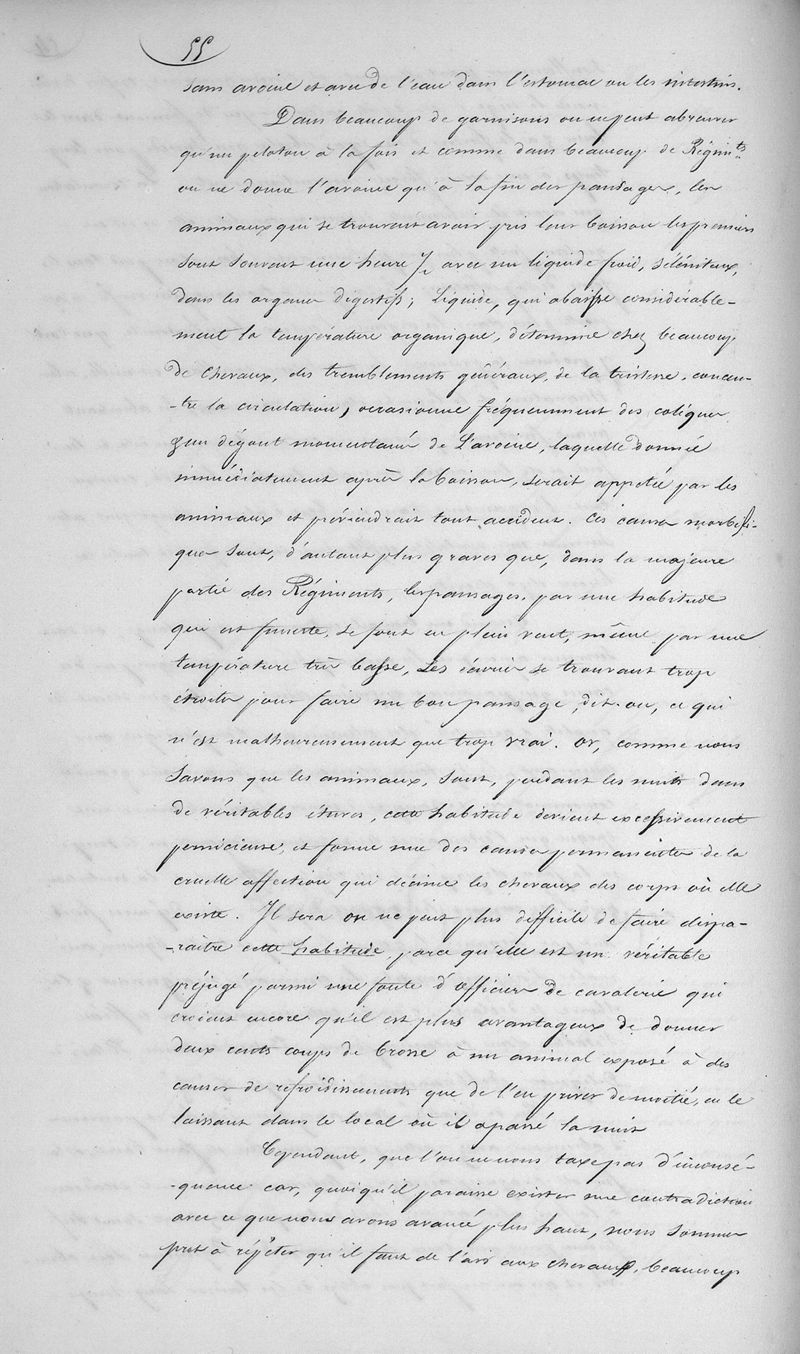 55
sans avoine et avec de l'eau dans l'estomac ou les intestins.
Dans beaucoup de garnisons on ne peut abreuver
qu'un peloton à la fois et comme dans beaucoup de Régimts
on ne donne l'avoine qu'à la fin des pansages, les
animaux qui se trouvent avoir pris leur boisson les premiers
sont souvent une heure ½ avec un liquide froid, séléniteux,
dans les organes digestifs; Liquide, qui abaisse considérable-
ment la température organique, détermine chez beaucoup
de chevaux, des tremblements généraux, de la tristesse, concen-
-tre la circulation, occasionne fréquemment des coliques
& un dégout momentané de L'avoine, laquelle donnée
immédiatement après la boisson, serait appetée par les
animaux et préviendrait tout accident. Ces causes morbifi-
ques sont, d'autant plus graves que, dans la majeure
partie des Régiments, les pansages, par une habitude
qui est funeste, se font en plein vent, même par une
température très basse, Les écuries se trouvant trop
étroites pour faire un bon pansage, dit-on, ce qui
n'est malheureusement que trop vrai. Or, comme nous
savons que les animaux, sont, pendant les nuits dans
de véritables étuves, cette habitude devient excessivement
pernicieuse, et forme une des causes permanentes de la
cruelle affection qui décime les chevaux des corps où elle
existe. Il sera on ne peut plus difficile de faire dispa-
-raître cette habitude, parce qu'elle est un véritable
préjugé parmi une foule d'officiers de cavalerie qui
croient encore qu'il est plus avantageux de donner
deux cents coups de brosse à un animal exposé à des
causes de refroidissements que de l'en priver de moitié, en le
laissant dans le local où il a passé la nuit
Cependant, que l'on ne nous taxe pas d'inconsé-
-quence car, quoiqu'il paraisse exister une contradiction
avec ce que nous avons avancé plus haut, nous sommes
prêt à répéter qu'il faut de l'air aux chevaux, beaucoup